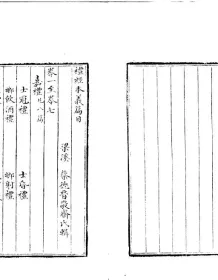 禮經本義篇目
梁溪 蔡德晉敬齋氏輯
卷一至卷七
嘉禮凡八篇
士冠禮 士昏禮
鄉飲酒禮 鄉射禮